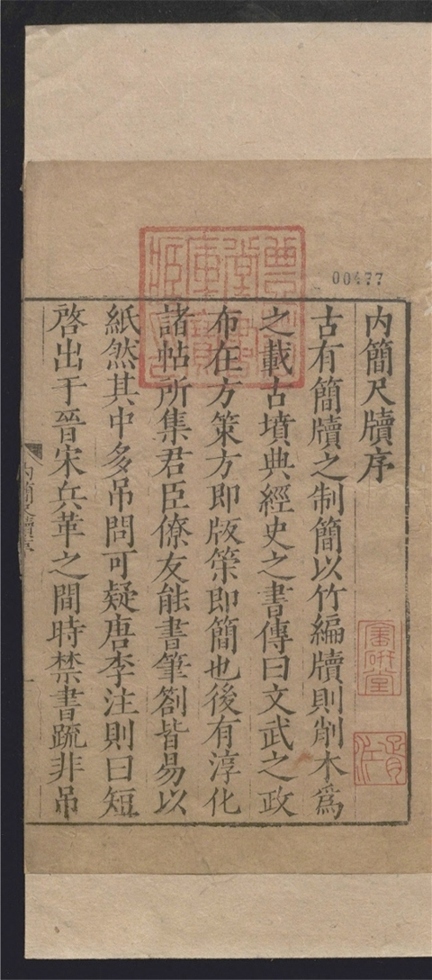 内簡尺牘序
古有簡牘之制簡以竹編牘則削木爲
之載古墳典經史之書傳曰文武之政
布在方策方即版策即簡也後有淳化
諸帖所集君臣僚友能書筆劄皆易以
紙然其中多吊問可疑唐李注則曰短
啓出于晉宋兵革之間時禁書䟽非吊
00477